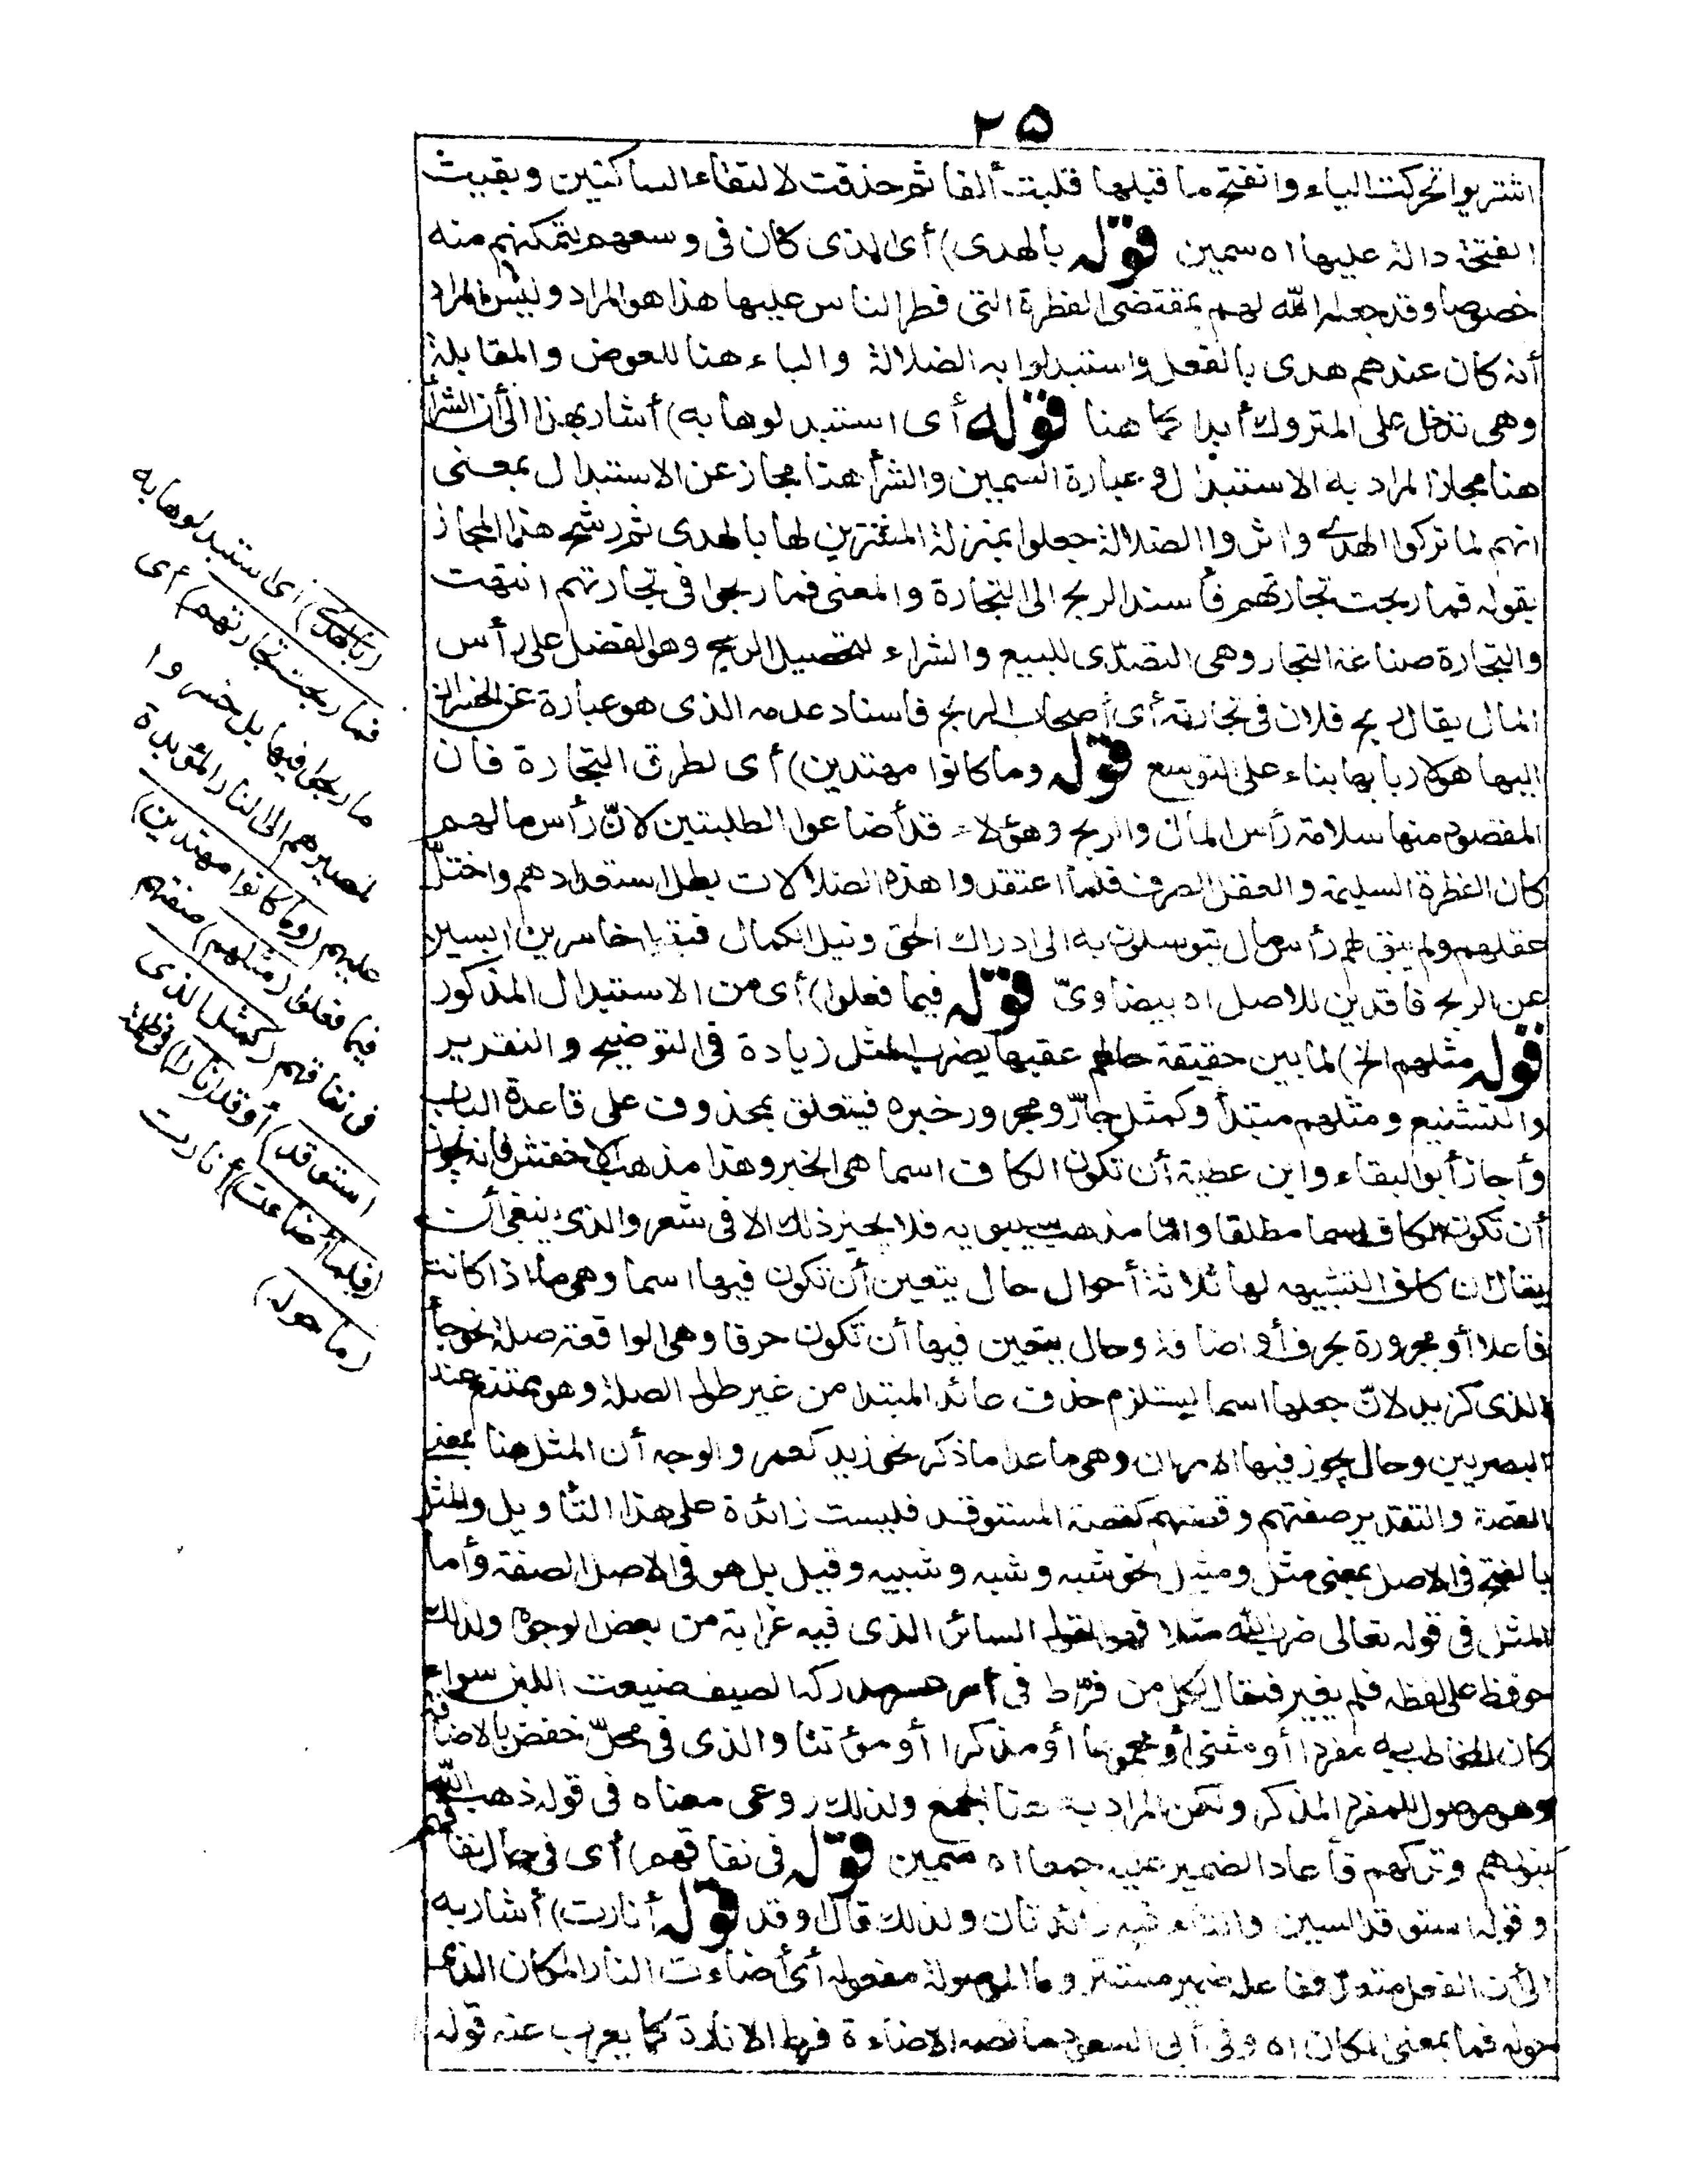 ٢٥
اشتريوا تحركت الياء وانفتح ما قبلها قلبت ألفا ثم حذفت لالتقاء الساكنين وبقيت
الفتحة دالة عليها اه سمين قوله بالهدى) أى الذى كان فى وسعهم تمكنهم منه
خصوصا وقد جعله الله لهم بمقتضى الفطرة التى فطر الناس عليها هذا هو المراد وليس المراد
أنه كان عندهم هدى بالفعل واستبدلوا به الضلالة والباء هنا للعوض والمقابلة
وهى تدخل على المتروك أبدا كما هنا قوله أى استبدلوها به) أشار بهذا الى أن الشرأ
هنا مجاز المراد به الاستبدال وعبارة السمين والشرأ هنا مجاز عن الاستبدال بمعنى
انهم لما تركوا الهدى واثروا الضلالة جعلوا بمنزلة المشترين لها بالهدى ثم رشح هذا المجاز
بقوله فما ربحت تجارتهم فأسند الربح الى التجارة والمعنى فما ربحوا فى تجارتهم انتهت
والتجارة صناعة التجار وهى التصدّى للبيع والشراء لتحصيل الربح وهو الفضل على رأس
المال يقال ربح فلان فى تجارته أى أصحاب الربح فاسناد عدمه الذى هو عبارة عن الخسران
اليها هو لاربابها بناء على التوسع قوله وما كانوا مهتدين) أى لطرق التجارة فان
المقصود منها سلامة رأس المال والربح وهؤلاء قد أضاعوا الطلبتين لانّ رأس مالهم
كان الفطرة السليمة والعقل الصرف فلما اعتقدوا هذه الضلالات بطل استعدادهم واختلّ
عقلهم ولم يبق لهم رأس مال يتوسلون به الى ادراك الحق ونيل الكمال فبقوا خاسرين ايسين
عن الربح فاقدين للاصل اه بيضاوىّ قوله فيما فعلوا) أى من الاستبدال المذكور
قوله مثلهم الخ) لما بين حقيقة حالهم عقبها بضرب المثل زيادة فى التوضيح والتقرير
والتشنيع ومثلهم مبتدأ وكمثل جارّ ومجرور خبره فيتعلق بمحذوف على قاعدة الباب
وأجاز أبو البقاء وابن عطية أن تكون الكاف اسما هى الخبر وهذا مذهب الاخفش فانه يجوز
أن تكون الكاف اسما مطلقا وأما مذهب سيبويه فلا يجيز ذلك الا فى شعر والذى ينبغى أن
يقال ان كاف التشبيه لها ثلاثة أحوال حال يتعين أن تكون فيها اسما وهى ما اذا كانت
فاعلا أو مجرورة بحرف أو اضافة وحال يتعين فيها أن تكون حرفا وهى الواقعة صلة نحو جأ
الذى كزيد لانّ جعلها اسما يستلزم حذف عائد المبتدا من غير طول الصلة وهو ممتنع عند
البصريين وحال يجوز فيها الامران وهى ما عدا ما ذكر نحو زيد كعمرو والوجه أن المثل هنا بمعنى
القصة والتقدير صفتهم وقصتهم كقصة المستوقد فليست زائدة على هذا التأويل والمثل
بالفتح فى الاصل بمعنى مثل ومثيل نحو شبه وشبه وشبيه وقيل بل هو فى الاصل الصفة وأما
المثل فى قوله تعالى ضرب الله مثلا فهو القول السائر الذى فيه غرابة من بعض الوجوه ولذلك
حوفظ على لفظه فلم يغير فيقال لكل من فرّط فى أمر عسر مدركه الصيف ضيعت اللبن سواء
كان المخاطب به مفردا أو مثنى أو مجموعا أو مذكرا أو مؤنثا والذى فى محلّ خفض بالاضافة
وهو موصول للمفرد المذكر ولكن المراد به هنا الجمع ولذلك روعى معناه فى قوله ذهب الله
بنورهم وتركهم فأعاد الضمير عليه جمعا اه سمين قوله فى نفاقهم) أى فى حال نفاقهم
وقوله استوقد السين والتاء فيه زائدتان ولذلك قال أوقد قوله أنارت) أشار به
الى أن الفعل متعدّ ففاعله ضمير مستتر وما الموصولة مفعوله أى أضاءت النار المكان الذى
حوله فما بمعنى المكان اه وفى أبى السعود ما نصه الاضاءة فرط الانارة كما يعرب عنه قوله
(بالهدى) أى استبدلوها به
(فما ربحت تجارتهم) أى
ما ربحوا فيها بل خسروا
لمصيرهم الى النار المؤبدة
عليهم (وما كانوا مهتدين)
فيما فعلوا (مثلهم) صفتهم
فى نفاقهم (كمثل الذى
استوقد) أوقد (نارا) فى ظلمة
(فلما أضاءت) أنارت
(ما حوله)